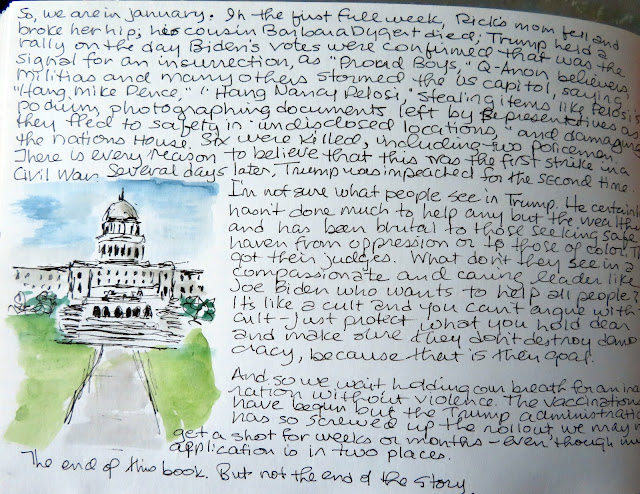 So, we are in January. In the first full week, Rick's mom fell and
broke her hip; her cousin Barbara Dygert died; Trump held a
rally on the day Biden's votes were confirmed that was the
signal for an insurrection, as "Proud Boys," Q-Anon believers
militias and many others stormed the US capitol, saying
"Hang Mike Pence," "Hang Nancy Pelosi," stealing items like Pelosi's
podium, photographing documents left by Representatives as
they fled to safety in "undisclosed locations," and damaging
the nations House. Six were killed, including two policemen.
There is every reason to believe that this was the first strike in a
Civil War. Several days later, Trump was impeached for the second time.
I'm not sure what people see in Trump. He certainl
hasn't done much to help any but the wealthi
and has been brutal to those seeking safe
haven from oppression or to those of color. Th
got their judges. What don't they see in a
compassionate and caring leader like
Joe Biden who wants to help all people?
It's like a cult and you can't argue with
cult - just protect what you hold dear
and make sure they don't destroy demo
cracy, because that is their goal.
And so we wait holding our breath for an inau
ration without violence. The vaccinations
have begun but the Trump administratio
has so screwed up the rollout we may n
get a shot for weeks or months - even though m
application is in two places.
The end of this book. But not the end of the story.